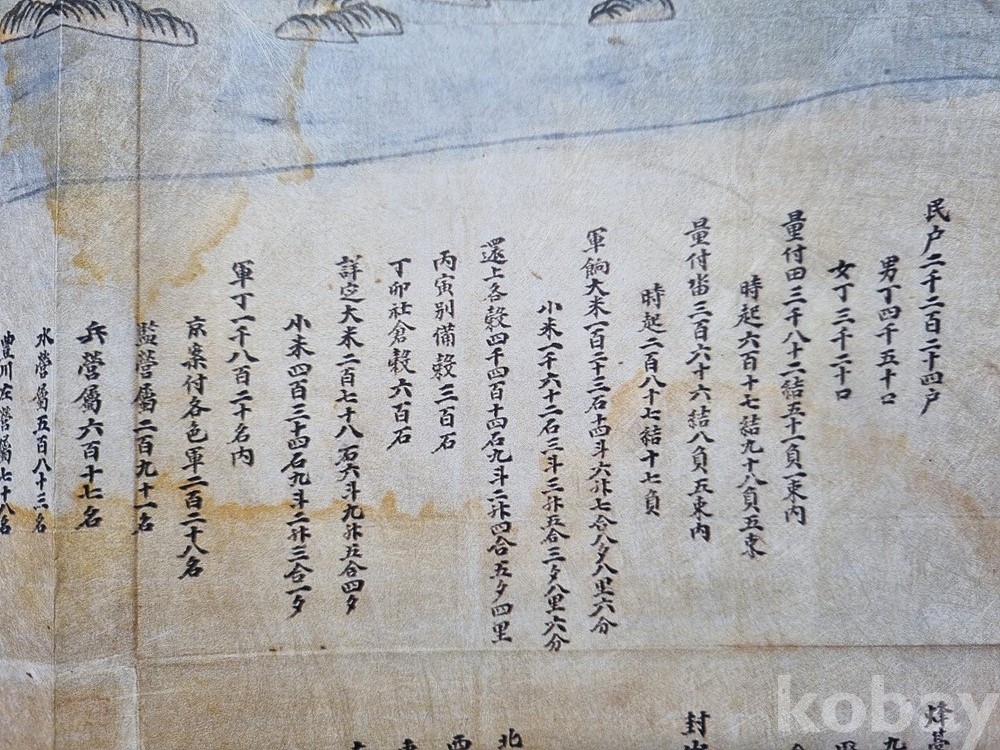 民户二千二百二十四户
男丁四千五十口
女丁三千二十口
量付田三千八十二結五十一負一束內
時起六百十七結九十八負五束
量付畓三百六十六結八負五束內
時起二百八十七結十七負
軍餉大米一百二十三石十四斗六升七合八夕八里六分
小米一千六十二石三斗三升五合三夕八里六分
還上各穀四千四百十四石九斗二升四合五夕四里
丙寅別備穀三百石
丁卯社倉穀六百石
詳定大米二百七十八石六斗九升五合四夕
小米四百三十四石九斗二升三合一夕
軍丁一千八百二十名內
京案付各色軍二百二十八名
監營屬二百九十一名
兵營屬六百十七名
水營屬五百八十三名
豊川左營屬七十八名
烽
九
封
北
西
kobay